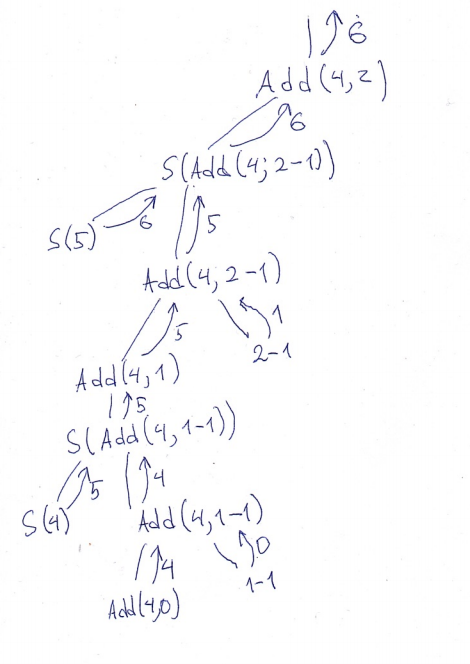 6
Add(4,2)
6
S(Add(4; 2-1))
S(5) 6 5
Add(4, 2-1)
5 1
2-1
Add(4,1)
5
S(Add(4,1-1))
5 4
S(4) Add(4,1-1)
4 0
1-1
Add(4,0)